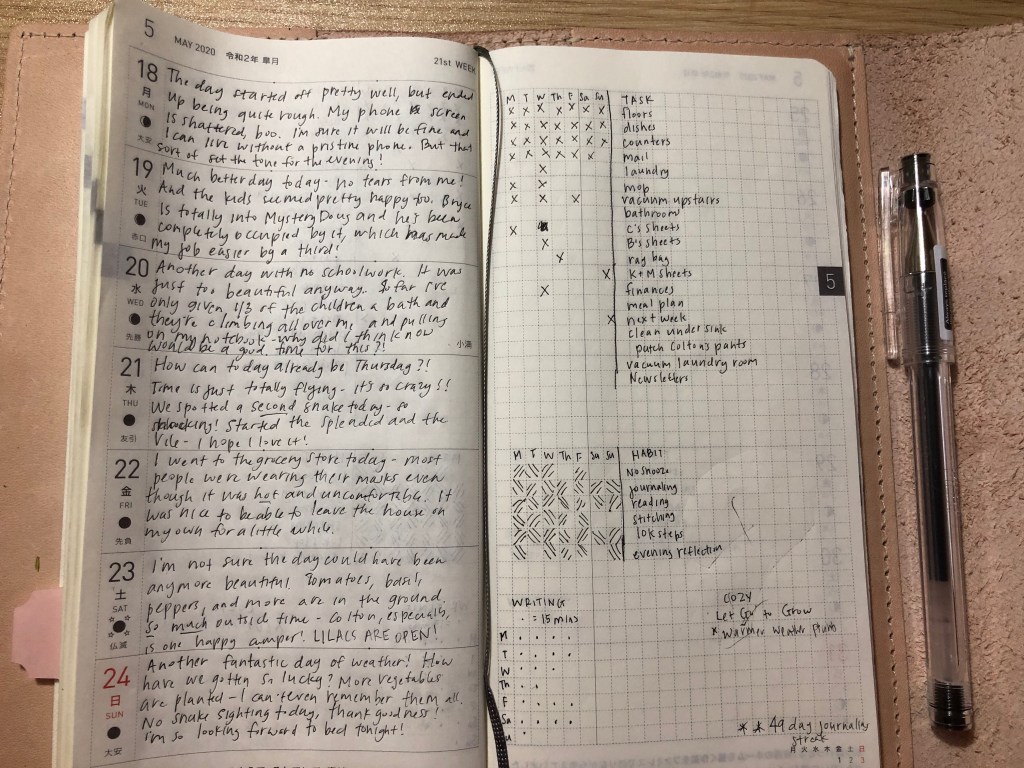 5 MAY 2020 令和2年 皐月 21st WEEK
18 月 MON 大安
The day started off pretty well, but ended
up being quite rough. My phone screen
is shattered, boo. I'm sure it will be fine and
I can live without a pristine phone. But that
sort of set the tone for the evening!
19 火 TUE 赤口
Much better day today - no tears from me!
And the kids seemed pretty happy too. Bryce
is totally into Mystery Doug and he's been
completely occupied by it, which has made
my job easier by a third!
20 水 WED 先勝
Another day with no schoolwork. It was
just too beautiful anyway. So far I've
only given 1/3 of the children a bath and
they're climbing all over me and pulling
on my notebook - why did I think now
would be a good time for this?!
小満
21 木 THU 友引
How can today already be Thursday?!
Time is just totally flying - it's so crazy!!
We spotted a second snake today - so
shocking! Started the Splendid and the
Vile - I hope I love it!
22 金 FRI 先負
I went to the grocery store today - most
people were wearing their masks even
though it was hot and uncomfortable. It
was nice to be able to leave the house on
my own for a little while.
23 土 SAT 仏滅
I'm not sure the day could have been
anymore beautiful. Tomatoes, basil,
peppers, and more are in the ground.
So much outside time - Colton, especially,
is one happy camper! LILACS ARE OPEN!
24 日 SUN 大安
Another fantastic day of weather! How
have we gotten so lucky? More vegetables
are planted - I can't even remember them all.
No snake sighting today, thank goodness!
I'm so looking forward to bed tonight!
M T W Th F Sa Su TASK
x x x x x x x floors
x x x x x x x dishes
x x x x x x x counters
x x x x x x mail
x laundry
x x mop
x x x vacuum upstairs
bathroom
x C's sheets
x B's sheets
x rag bag
x K+M sheets
x finances
meal plan
x next week
clean under sink
patch Colton's pants
vacuum laundry room
Newsletters
5
M T W Th F Sa Su HABIT
No snooze
journaling
reading
stitching
10k steps
evening reflection
WRITING
· = 15 mins
M
T
W
Th
F
Sa
Su
COZY
Let Go to Grow
* Warmer Weather
* * 49 day journaling
streak
月 火 水 木 金 土 日
1 2 3